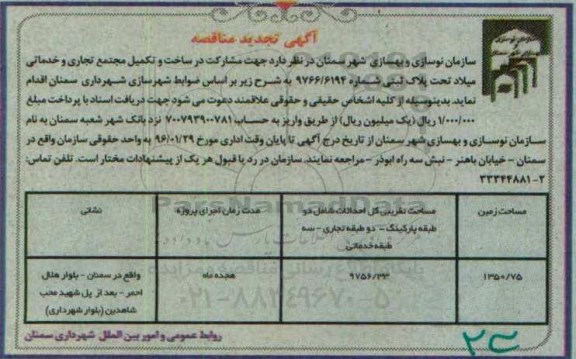 آگهی تجدید مناقصه
سازمان نوسازی و بهسازی شهر سمنان در نظر دارد جهت مشارکت در ساخت و تکمیل مجتمع تجاری و خدماتی
میلاد تحت پلاک ثبتی شماره ۹۷۶۶/۶۱۹۴ به شرح زیر بر اساس ضوابط شهرسازی شهرداری سمنان اقدام
نماید. بدینوسیله از کلیه اشخاص حقیقی و حقوقی علاقمند دعوت می شود جهت دریافت اسناد با پرداخت مبلغ
۱/۰۰۰/۰۰۰ ریال (یک میلیون ریال) از طریق واریز به حساب ۷۰۰۷۹۳۹۰۰۷۸۱ نزد بانک شهر شعبه سمنان به نام
سازمان نوسازی و بهسازی شهر سمنان از تاریخ درج آگهی تا پایان وقت اداری مورخ ۹۶/۰۱/۲۹ به واحد حقوقی سازمان واقع در
سمنان – خیابان باهنر – نبش سه راه ابوذر – مراجعه نمایند. سازمان در رد یا قبول هر یک از پیشنهادات مختار است. تلفن تماس:
۲-۳۳۳۴۴۸۸۱
مساحت زمین
مساحت تقریبی کل احداثات شامل دو
طبقه پارکینگ – دو طبقه تجاری – سه
طبقه خدماتی
مدت زمان اجرای پروژه
نشانی
۱۳۵۰/۷۵
۹۷۵۶/۳۳
هجده ماه
واقع در سمنان – بلوار هلال
احمر – بعد از پل شهید محب
شاهدین (بلوار شهرداری)
ParsNamadData
۰۲۱-۸۸۳۴۹۶۷۰-۵
روابط عمومی و امور بین الملل شهرداری سمنان